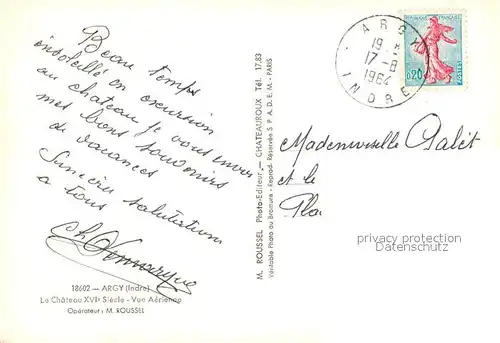 Beau temps
ensoleillé en excursion
au chateau je vous envoi
mes bons souvenirs
de vacances
Sincère salutation
a tous
18602 — ARGY (Indre)
Le Château XVIe Siècle - Vue Aérienne
Opérateur : M. ROUSSEL
M. ROUSSEL Photo-Editeur — CHATEAUROUX Tél. 17.83
Véritable Photo au Bromure - Reprod. Réservée S P A D E M - PARIS
ARGY
19 H
17-8
1964
INDRE
0,20
POSTES
Mademoiselle
et le
privacy protection
Datenschutz